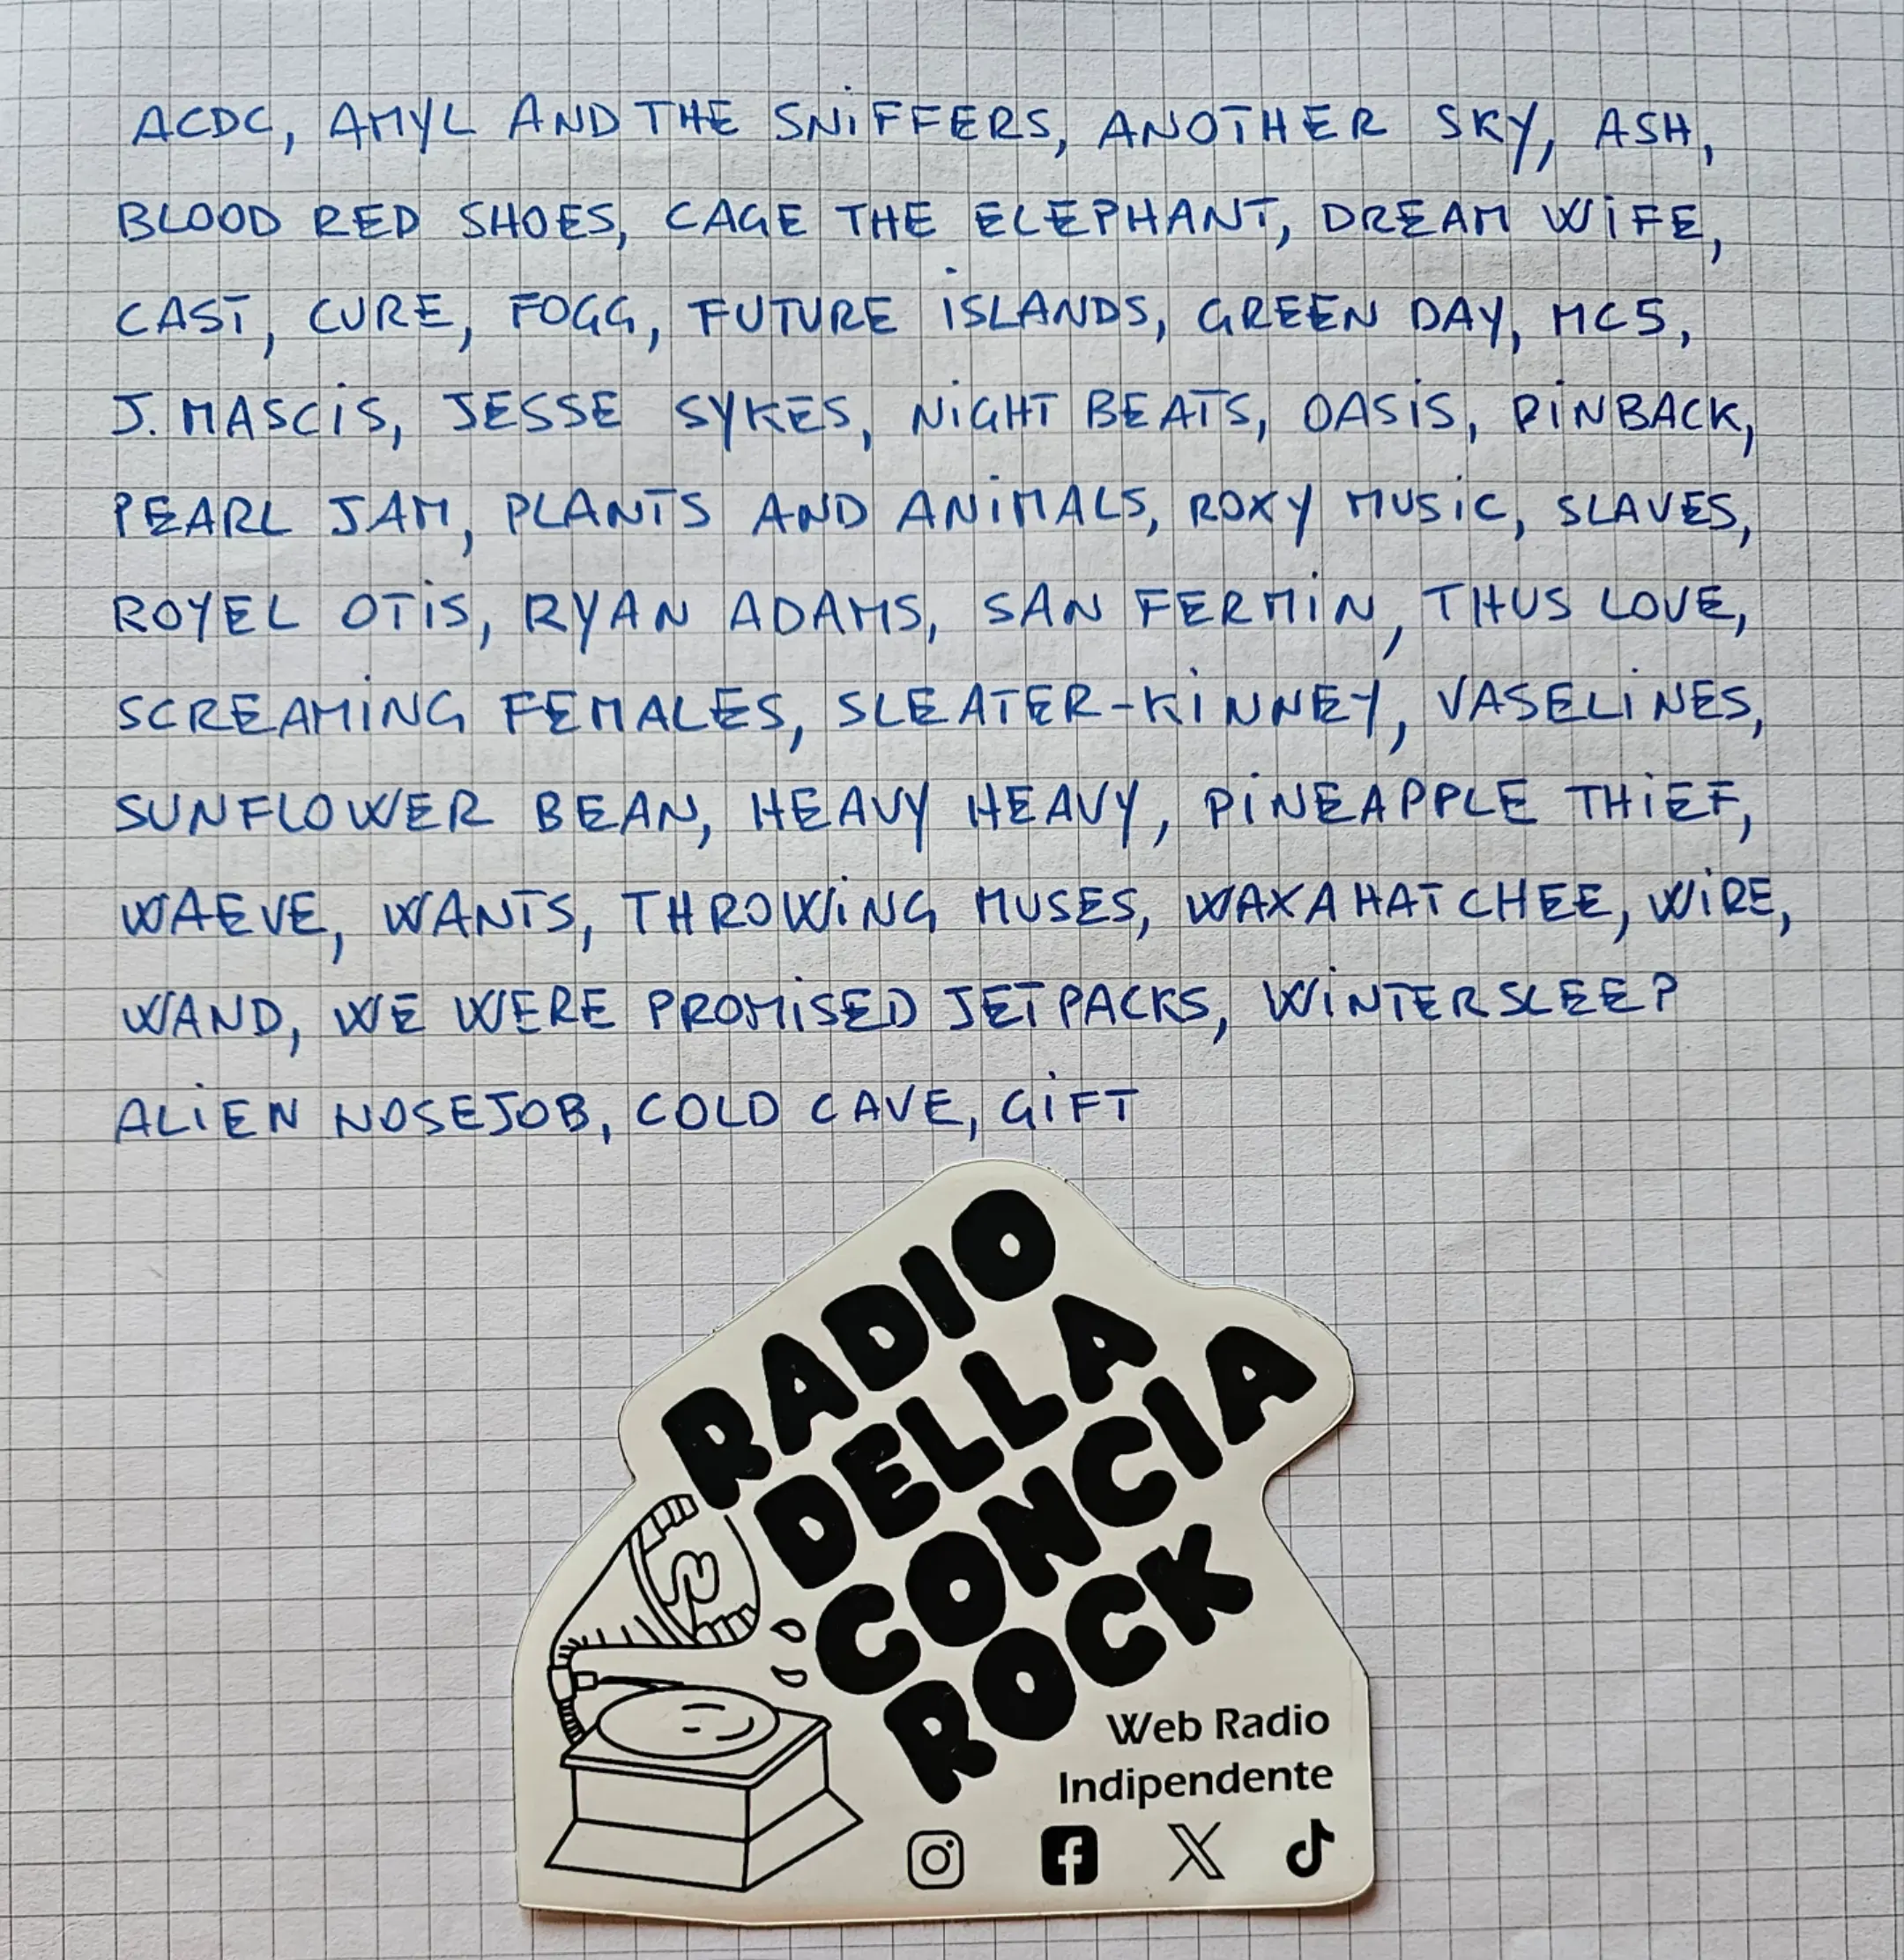 ACDC, AMYL AND THE SNiFFERS, ANOTHER SKY, ASH,
BLOOD RED SHOES, CAGE THE ELEPHANT, DREAM WiFE,
CAST, CURE, FOGG, FUTURE iSLANDS, GREEN DAY, MC5,
J. MASCiS, JESSE SYKES, NiGHT BEATS, OASiS, PiNBACK,
PEARL JAM, PLANTS AND ANiMALS, ROXY MUSiC, SLAVES,
ROYEL OTiS, RYAN ADAMS, SAN FERMiN, THUS LOVE,
SCREAMiNG FEMALES, SLEATER-KiNNEY, VASELiNES,
SUNFLOWER BEAN, HEAVY HEAVY, PiNEAPPLE THiEF,
WAEVE, WANTS, THROWiNG MUSES, WAXAHATCHEE, WiRE,
WAND, WE WERE PROMiSED JETPACKS, WiNTERSLEEP
ALiEN NOSEJOB, COLD CAVE, GiFT
RADIO
DELLA
CONCIA
ROCK
Web Radio
Indipendente